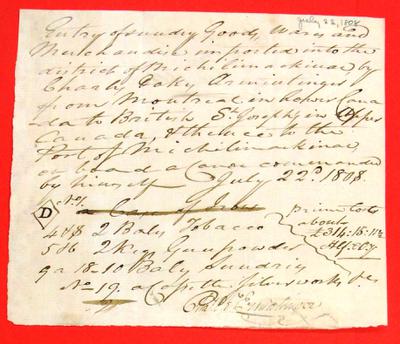 July 22, 1808
Entry of sundry Goods, Wares and
Merchandise imported into the
district of Michilimackinac, by
Charles Ermatinger
from Montreal in Lower Cana
da to British St. Josephs in Upper
Canada, & thence to the
Port of Michilimackinac,
on board a Canoe commanded
by himself July 22d 1808.
No. 1 a Case of
Prime Cost
D
4 & 8 2 Bales Tobacco
about
£314:15:11½
5 & 6 2 Kegs Gunpowder
9 a 18 - 10 Bales Sundries
No 19. a Case of Silverworks &c
Ermatinger